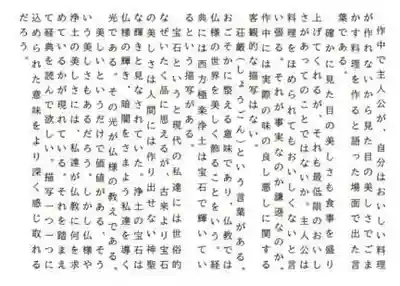 作中で主人公が、自分はおいしい料理
が作れないから見た目の美しさでごま
かす料理を作ると語った場面で出た言
葉である。
確かに見た目の美しさも食事を盛り
上げてくれるが、それも最低限のおいし
さがあってのことではないか。主人公は
料理をほめられてもおいしくないと言
い張る。それが事実なのか謙遜なのか。
作中には実際の味の良し悪しに関する
客観的な描写はない。
荘厳（しょうごん）という言葉がある。
おごそかに整える意味であり、仏教では
仏様の世界を美しく飾ることをいう。経
典には西方極楽浄土は宝石で輝いてい
るという描写がある。
宝石というと現代の私達には世俗的
なぜいたく品に思えるが、古来より宝石
の美しさは人間には作り出せない神聖
な輝きと見なされていた。浄土の宝石は
仏様の輝き、暗闇をさまよう私達を導く
光である。その光が仏様の教えである。
美しいというだけで価値がある、そう
いう美しさもあるだろう。しかし仏様や
浄土の美しさには、私達が仏教に何を求
めているかが現れている。それを踏まえ
て経典を読んで欲しい。描写一つ一つに
込められた意味をより深く感じ取れる
だろう。